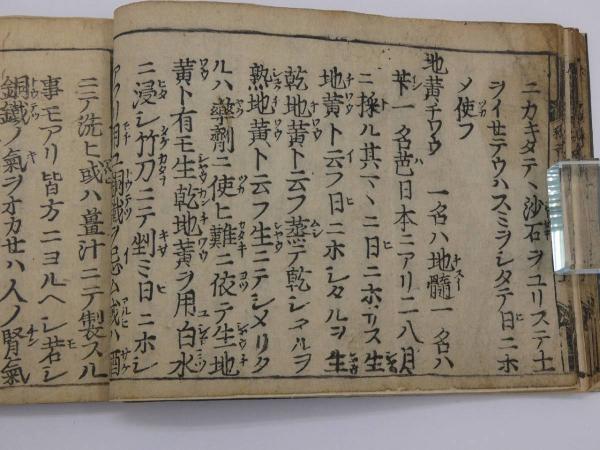 ニカキタテヽ沙石ヲユリステ土
ヲイサテウハスミヲシタテ日ニホ
メ使フ
地黄チワウ 一名ハ地髓一名ハ
芐一名芑日本ニアリ二八月
ニ採ル其マヽニ日ニホサス生
地黄ト云フ日ニホシタルヲ生
乾地黄ト云フ蒸テ乾シタルヲ
熟地黄ト云フ生ニテシメリタ
ルハ藥劑ニ使ヒ難ニ依テ生地
黄ト有モ生乾地黄ヲ用白水
ニ浸シ竹刀ニテ刻ミ日ニホシ
用ユ銅鐵ヲ忌ム或ハ酒
ニテ洗ヒ或ハ薑汁ニテ製スル
事モアリ皆方ニヨルヘシ若シ
銅鐵ノ氣ヲオカセハ人ノ腎氣